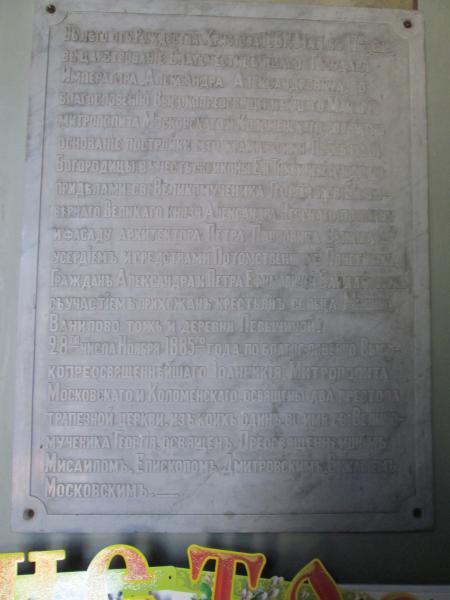 Въ лѣто отъ Рождества Христова
въ царствованіе Благочестивѣйшаго Государя
Императора Александра Александровича,
благословенію Высокопреосвященнѣйшаго
митрополита Московскаго и Коломенскаго
основаніе постройке сего храма
Богородицы въ честь иконы Ея Казанской
придѣлами: св. Великомученика Георгія и
вернаго Великаго князя Александра Невскаго по плану
и фасаду архитектора Петра Павловича
усердіемъ и средствами Потомственныхъ Почетныхъ
Гражданъ Александра и Петра
съ участіемъ прихожанъ крестьянъ сельца
Ванилово тожъ и деревни Левычиной.
28го числа Ноября 1885го года, по благословенію Высо-
копреосвященнѣйшаго Іоанникія Митрополита
Московскаго и Коломенскаго, освящены два престола
трапезной церкви, изъ коихъ одинъ во имя св. Велико-
мученика Георгія, освященъ Преосвященнѣйшимъ
Мисаиломъ, Епископомъ Дмитровскимъ, Викаріемъ
Московскимъ.